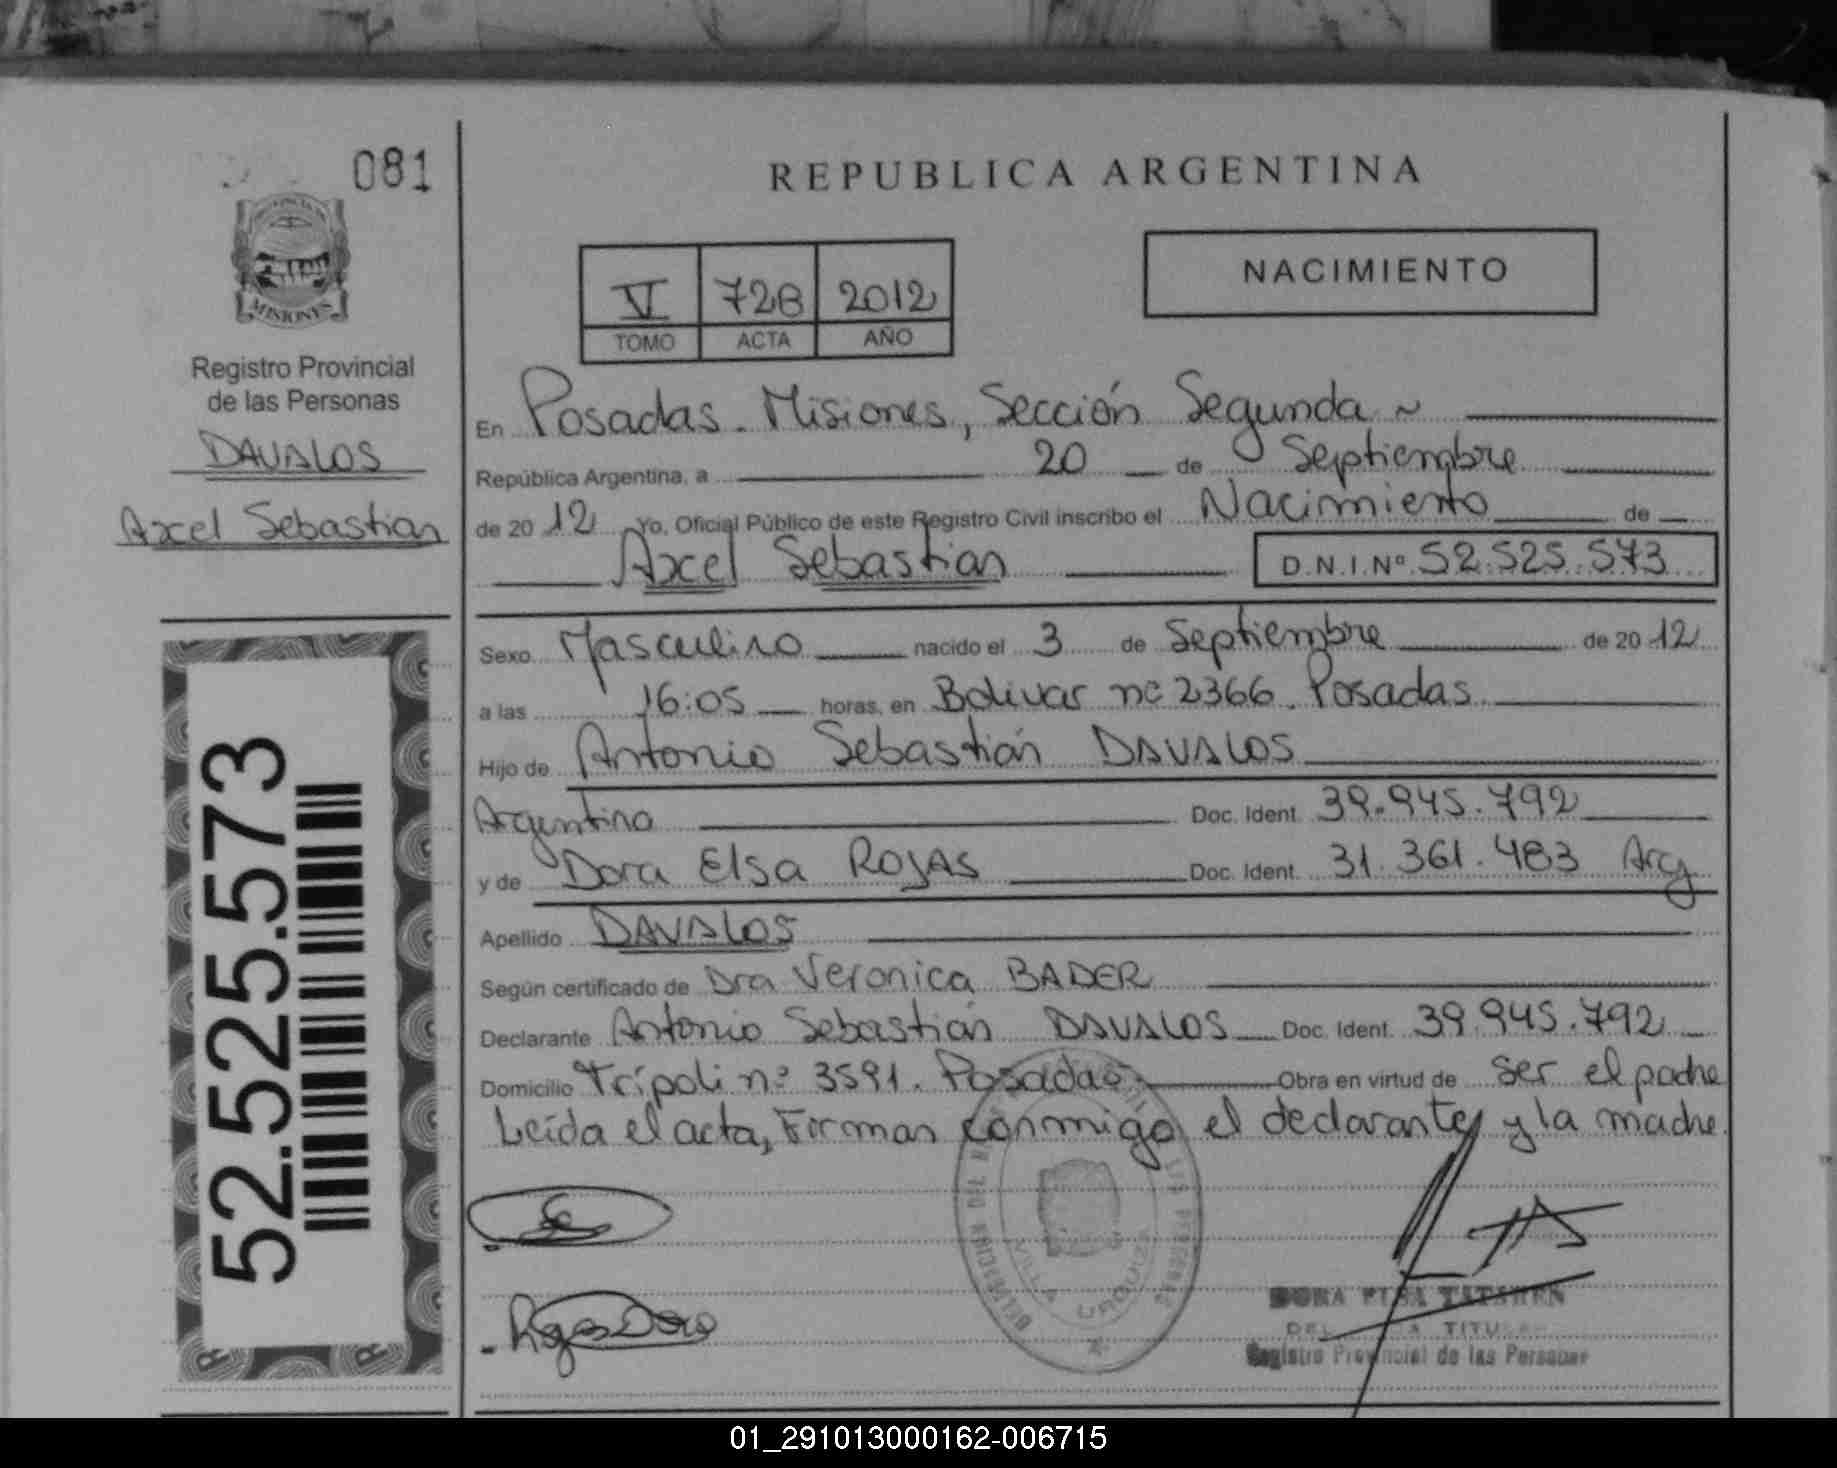 081
PROVINCIA DE
MISIONES
Registro Provincial
de las Personas
DAVALOS
Axcel Sebastian
52.525.573
REPUBLICA ARGENTINA
V 728 2012
TOMO ACTA AÑO
NACIMIENTO
En Posadas. Misiones, Sección Segunda ~
República Argentina, a 20 de Septiembre
de 2012 Yo, Oficial Público de este Registro Civil inscribo el Nacimiento de
Axcel Sebastián D.N.I.Nº 52.525.573
Sexo Masculino nacido el 3 de Septiembre de 2012
a las 16:05 horas, en Bolivar nº 2366. Posadas
Hijo de Antonio Sebastián DAVALOS
Argentino Doc. Ident. 39.945.792
y de Dora Elsa ROJAS Doc. Ident. 31.361.483 Arg
Apellido DAVALOS
Según certificado de Dra Veronica BADER
Declarante Antonio Sebastián DAVALOS Doc. Ident. 39.945.792
Domicilio Trípoli nº 3591. Posadas Obra en virtud de ser el padre
Leída el acta, Firman conmigo el declarante y la madre.
VILLA URQUIZA
Rojas Dora
DORA ELSA
TITULAR
Registro Provincial de las Personas
01_291013000162-006715